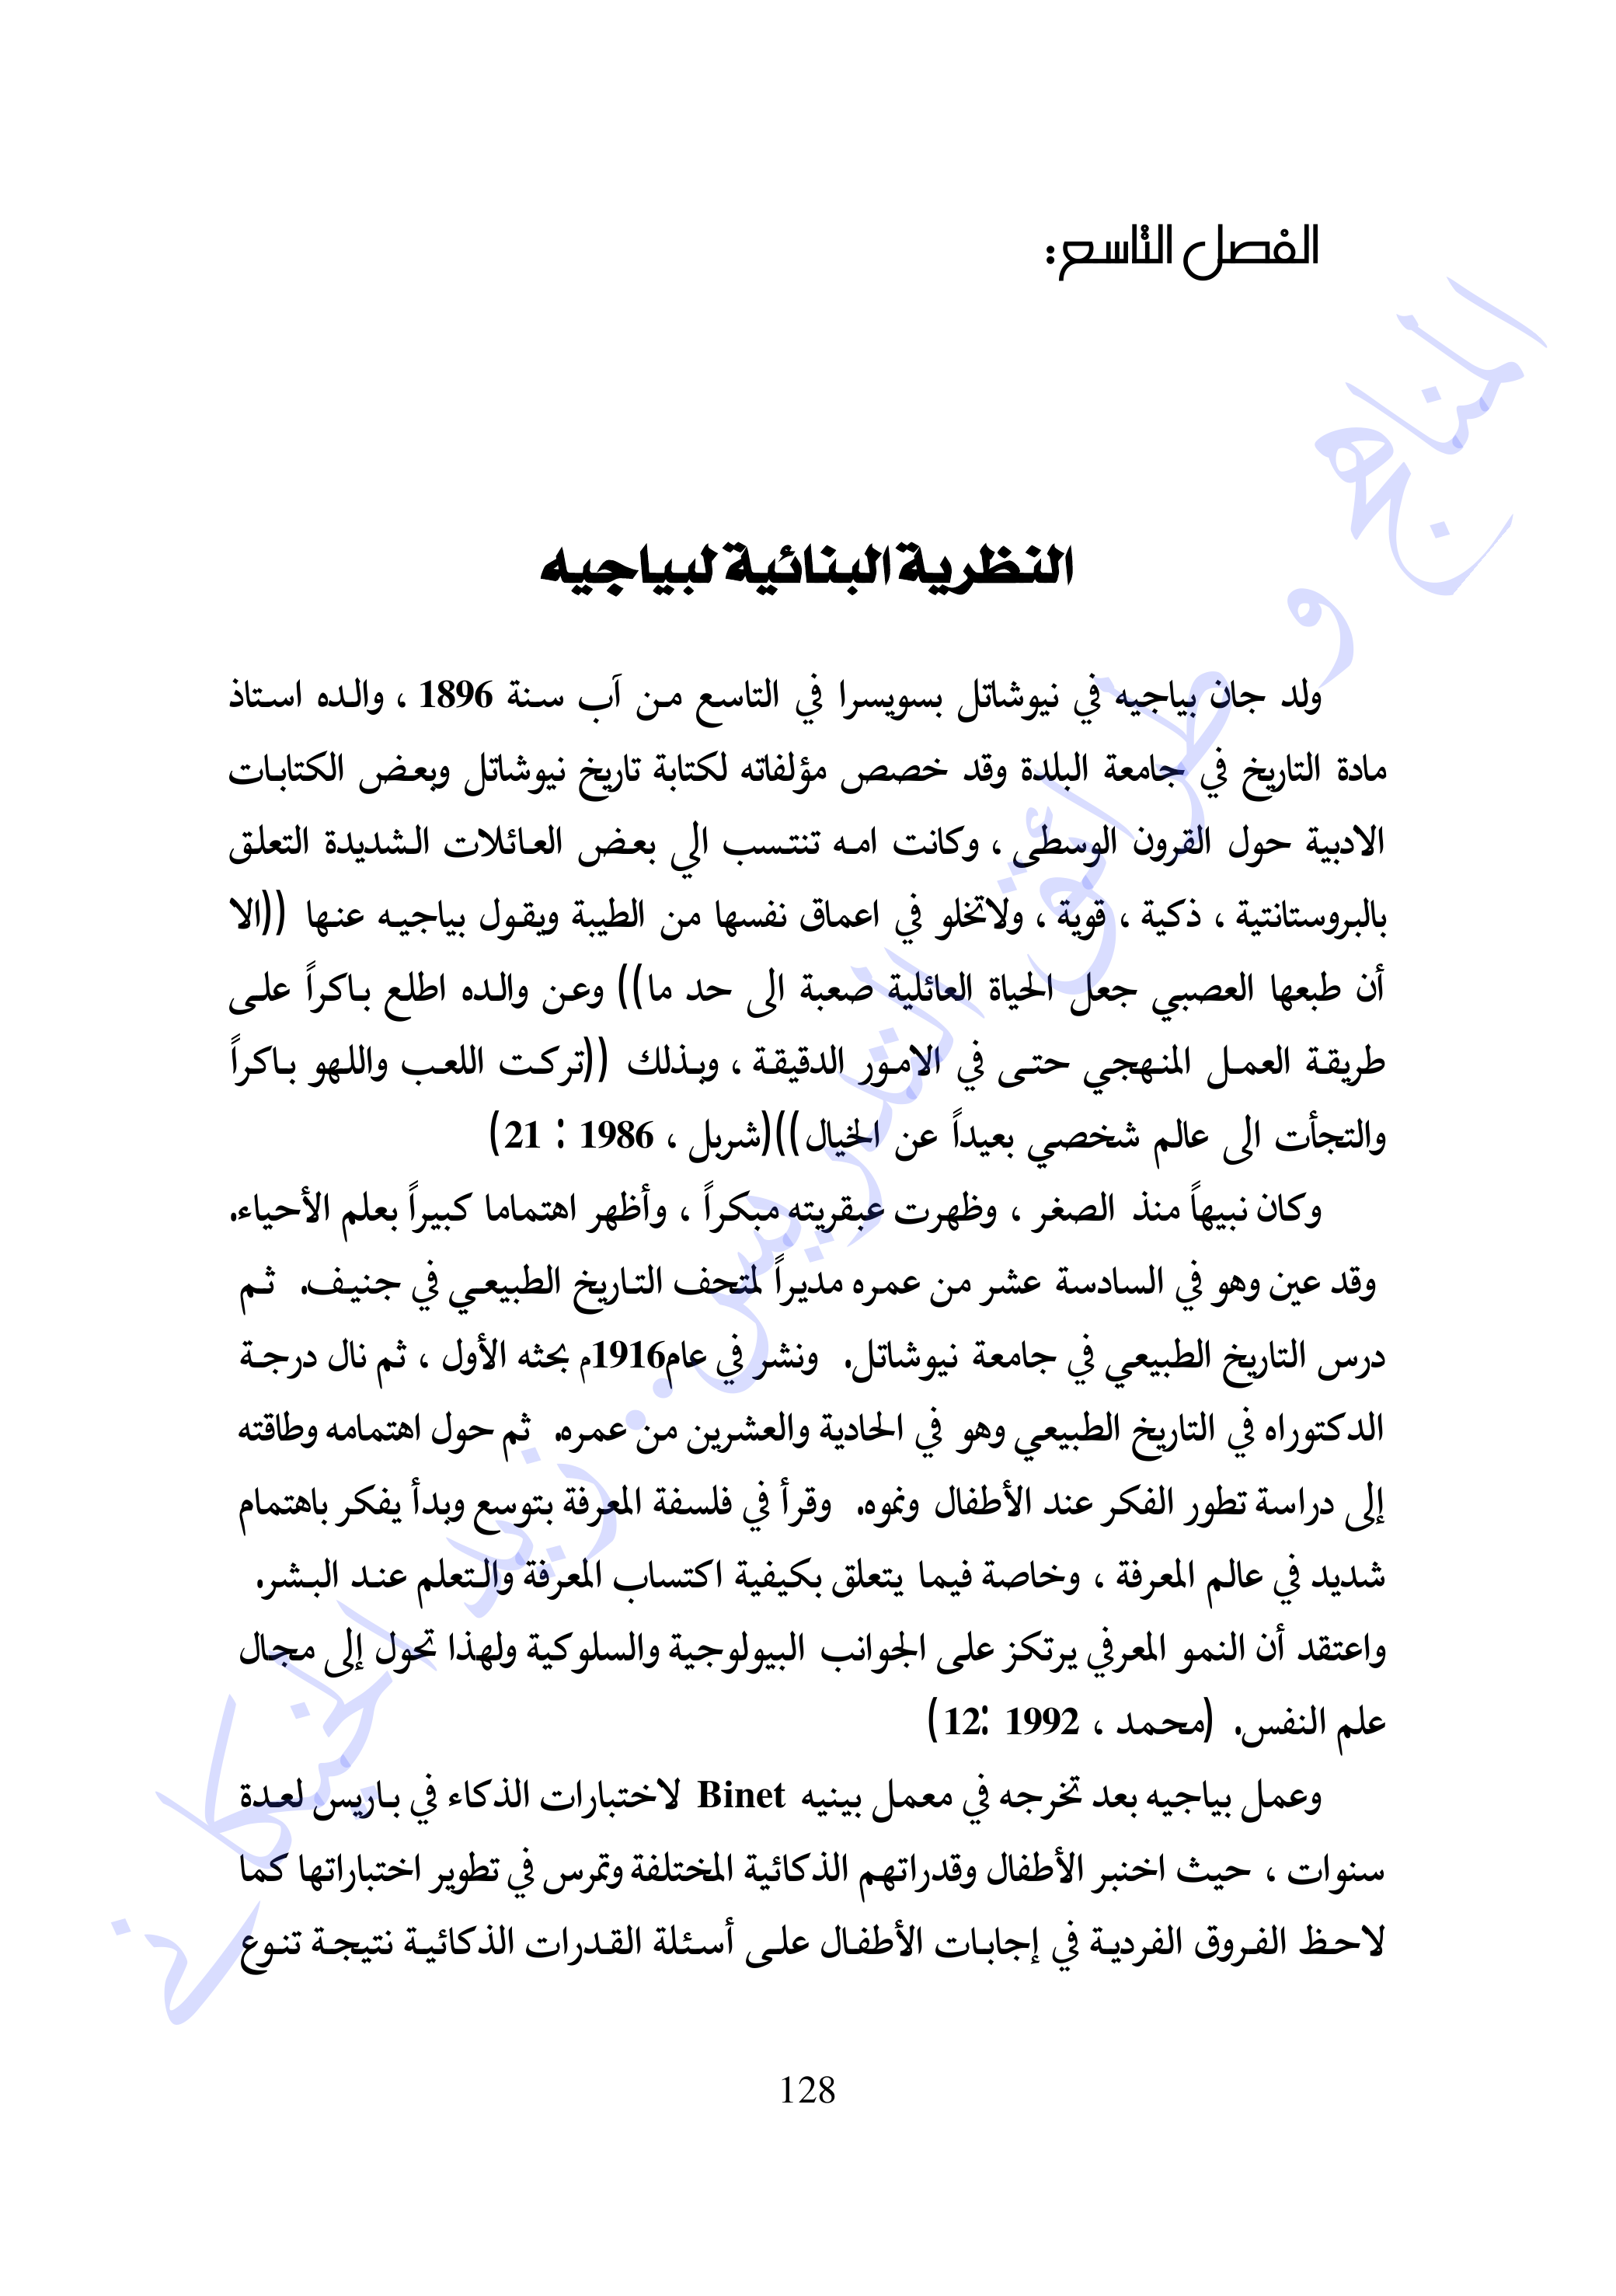 الفصل التاسع:
النظرية البنائية لبياجيه
ولد جان بياجيه في نيوشاتل بسويسرا في التاسع من آب سنة 1896 ، والده استاذ
مادة التاريخ في جامعة البلدة وقد خصص مؤلفاته لكتابة تاريخ نيوشاتل وبعض الكتابات
الادبية حول القرون الوسطى ، وكانت امه تنتسب الي بعض العائلات الشديدة التعلق
بالبروستانتية ، ذكية ، قوية ، ولاتخلو في اعماق نفسها من الطيبة ويقول بياجيه عنها ((الا
أن طبعها العصبي جعل الحياة العائلية صعبة الى حد ما)) وعن والده اطلع باكراً على
طريقة العمل المنهجي حتى في الامور الدقيقة ، وبذلك ((تركت اللعب واللهو باكراً
والتجأت الى عالم شخصي بعيداً عن الخيال))(شربل ، 1986 : 21)
وكان نبيهاً منذ الصغر ، وظهرت عبقريته مبكراً ، وأظهر اهتماما كبيراً بعلم الأحياء.
وقد عين وهو في السادسة عشر من عمره مديراً لمتحف التاريخ الطبيعي في جنيف. ثم
درس التاريخ الطبيعي في جامعة نيوشاتل. ونشر في عام1916م بحثه الأول ، ثم نال درجة
الدكتوراه في التاريخ الطبيعي وهو في الحادية والعشرين من عمره. ثم حول اهتمامه وطاقته
إلى دراسة تطور الفكر عند الأطفال ونموه. وقرأ في فلسفة المعرفة بتوسع وبدأ يفكر باهتمام
شديد في عالم المعرفة ، وخاصة فيما يتعلق بكيفية اكتساب المعرفة والتعلم عند البشر.
واعتقد أن النمو المعرفي يرتكز على الجوانب البيولوجية والسلوكية ولهذا تحول إلى مجال
علم النفس. (محمد ، 1992 :12)
وعمل بياجيه بعد تخرجه في معمل بينيه Binet لاختبارات الذكاء في باريس لعدة
سنوات ، حيث اخنبر الأطفال وقدراتهم الذكائية المختلفة وتمرس في تطوير اختباراتها كما
لاحظ الفروق الفردية في إجابات الأطفال على أسئلة القدرات الذكائية نتيجة تنوع
128
المناهج و طرائق التدريس..زيد الخيكاني